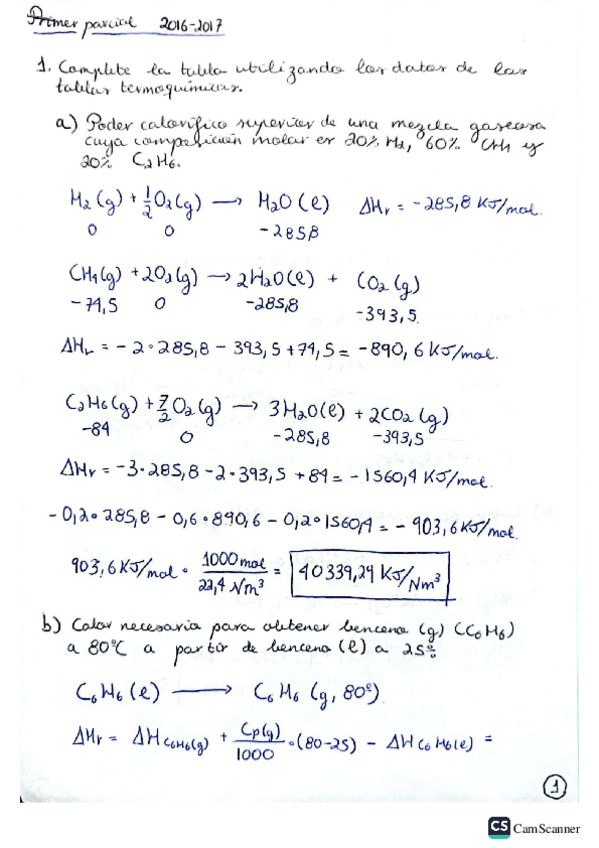 Primer parcial 2016-2017
1. Complete la tabla utilizando los datos de las
tablas termoquímicas.
a) Poder calorífico superior de una mezcla gaseosa
cuya composición molar es 20% H2, 60% CH4 y
20% C2H6.
H2(g) + 1/2 O2(g) → H2O(l) ΔHr = -285,8 KJ/mol.
0 0 -285,8
CH4(g) + 2O2(g) → 2H2O(l) + CO2(g)
-74,5 0 -285,8 -393,5
ΔHr = -2·285,8 - 393,5 + 74,5 = -890,6 KJ/mol.
C2H6(g) + 7/2 O2(g) → 3H2O(l) + 2CO2(g)
-84 0 -285,8 -393,5
ΔHr = -3·285,8 - 2·393,5 + 84 = -1560,4 KJ/mol.
-0,2·285,8 - 0,6·890,6 - 0,2·1560,4 = -903,6 KJ/mol.
903,6 KJ/mol · 1000 mol / 22,4 Nm³ = 40339,29 KJ/Nm³
b) Calor necesario para obtener benceno (g) (C6H6)
a 80ºC a partir de benceno (l) a 25º
C6H6(l) → C6H6(g, 80º)
ΔHr = ΔHC6H6(g) + Cp(g)/1000 · (80-25) - ΔHC6H6(l) =
1
CS CamScanner